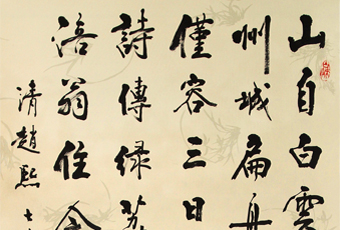 山自白雲
州城扁舟
僅容三日
詩傳綠荔
涪翁住
清趙熙